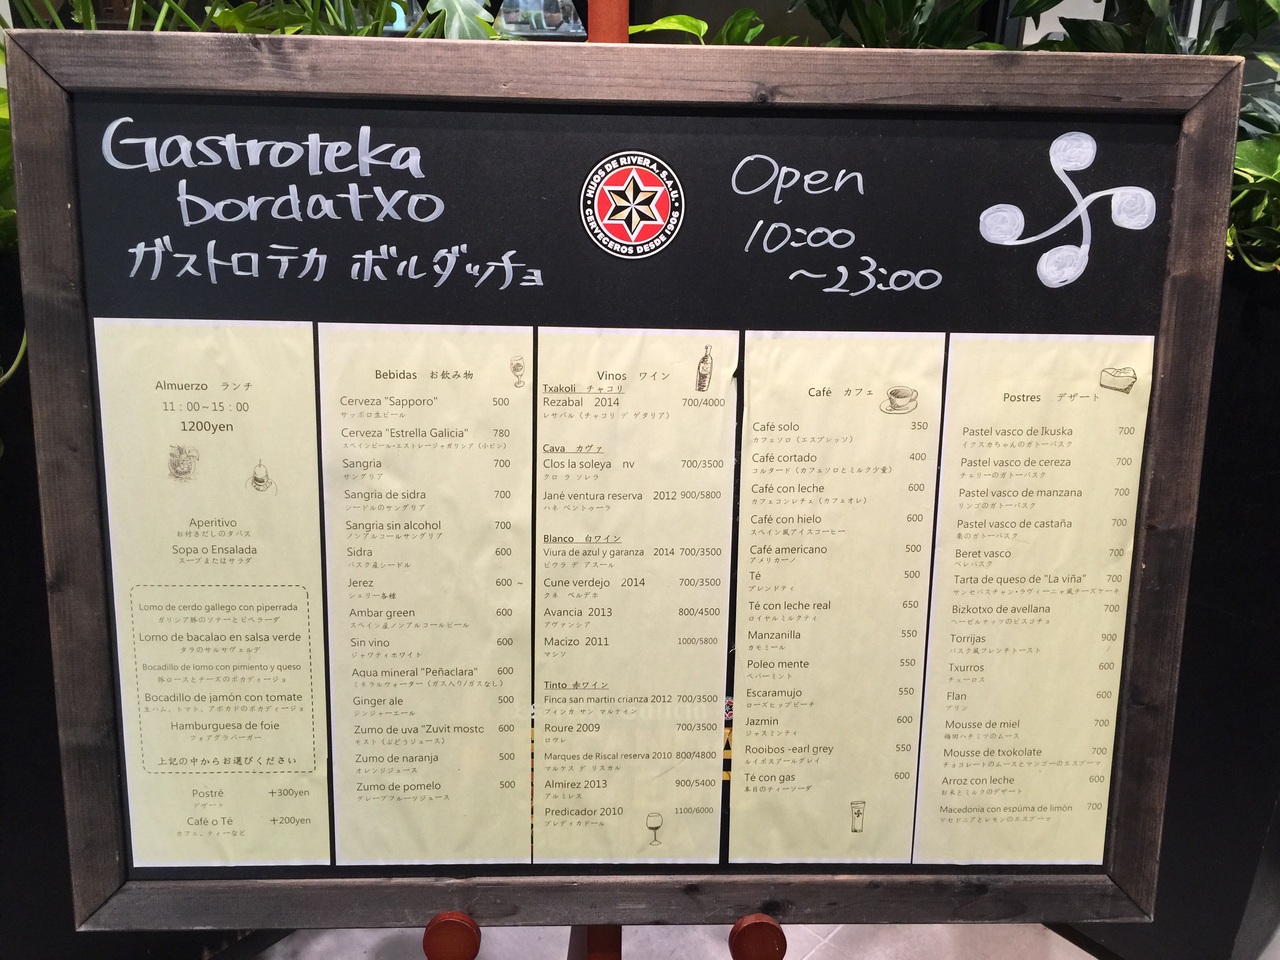 Gastroteka
bordatxo
ガストロテカ ボルダッチョ
HIJOS DE RIVERA, S.A.U.
CERVECEROS DESDE 1906
Open
10:00
~23:00
Almuerzo ランチ
11：00～15：00
1200yen
Aperitivo
お付きだしのタパス
Sopa o Ensalada
スープまたはサラダ
Lomo de cerdo gallego con piperrada
ガリシア豚のソテーとピペラーダ
Lomo de bacalao en salsa verde
タラのサルサヴェルデ
Bocadillo de lomo con pimiento y queso
豚ロースとチーズのボカディージョ
Bocadillo de jamón con tomate
生ハム、トマト、アボカドのボカディージョ
Hamburguesa de foie
フォアグラバーガー
上記の中からお選びください
Postré +300yen
デザート
Café o Té +200yen
カフェ、ティーなど
Bebidas お飲み物
Cerveza "Sapporo" 500
サッポロ生ビール
Cerveza "Estrella Galicia" 780
スペインビール・エストレージャガリシア（小ビン）
Sangria 700
サングリア
Sangria de sidra 700
シードルのサングリア
Sangria sin alcohol 700
ノンアルコールサングリア
Sidra 600
バスク産シードル
Jerez 600 ~
シェリー各種
Ambar green 600
スペイン産ノンアルコールビール
Sin vino 600
ジャウティホワイト
Aqua mineral "Peñaclara" 600
ミネラルウォーター（ガス入り/ガスなし）
Ginger ale 500
ジンジャーエール
Zumo de uva "Zuvit mosto 600
モスト（ぶどうジュース）
Zumo de naranja 500
オレンジジュース
Zumo de pomelo 500
グレープフルーツジュース
Vinos ワイン
Txakoli チャコリ
Rezabal 2014 700/4000
レサバル（チャコリ デ ゲタリア）
Cava カヴァ
Clos la soleya nv 700/3500
クロ ラ ソレラ
Jané ventura reserva 2012 900/5800
ハネ ベントゥーラ
Blanco 白ワイン
Viura de azul y garanza 2014 700/3500
ビウラ デ アスール
Cune verdejo 2014 700/3500
クネ ベルデホ
Avancia 2013 800/4500
アヴァンシア
Macizo 2011 1000/5800
マシソ
Tinto 赤ワイン
Finca san martin crianza 2012 700/3500
フィンカ サン マルティン
Roure 2009 700/3500
ロウレ
Marques de Riscal reserva 2010 800/4800
マルケス デ リスカル
Almirez 2013 900/5400
アルミレス
Predicador 2010 1100/6000
プレディカドール
Café カフェ
Café solo 350
カフェソロ（エスプレッソ）
Café cortado 400
コルタード（カフェソロとミルク少量）
Café con leche 600
カフェコンレチェ（カフェオレ）
Café con hielo 600
スペイン風アイスコーヒー
Café americano 500
アメリカーノ
Té 500
ブレンドティ
Té con leche real 650
ロイヤルミルクティ
Manzanilla 550
カモミール
Poleo mente 550
ペパーミント
Escaramujo 550
ローズヒップピーチ
Jazmin 600
ジャスミンティ
Rooibos -earl grey 550
ルイボスアールグレイ
Té con gas 600
本日のティーソーダ
Postres デザート
Pastel vasco de Ikuska 700
イクスカちゃんのガトーバスク
Pastel vasco de cereza 700
チェリーのガトーバスク
Pastel vasco de manzana 700
リンゴのガトーバスク
Pastel vasco de castaña 700
栗のガトーバスク
Beret vasco 700
ベレバスク
Tarta de queso de "La viña" 700
サンセバスチャン・ラヴィーニャ風チーズケーキ
Bizkotxo de avellana 700
ヘーゼルナッツのビスコチョ
Torrijas 900
バスク風フレンチトースト
Txurros 600
チューロス
Flan 600
プリン
Mousse de miel 700
梅田ハチミツのムース
Mousse de txokolate 700
チョコレートのムースとマンゴーのエスプーマ
Arroz con leche 600
お米とミルクのデザート
Macedonia con espúma de limón 700
マセドニアとレモンのエスプーマ